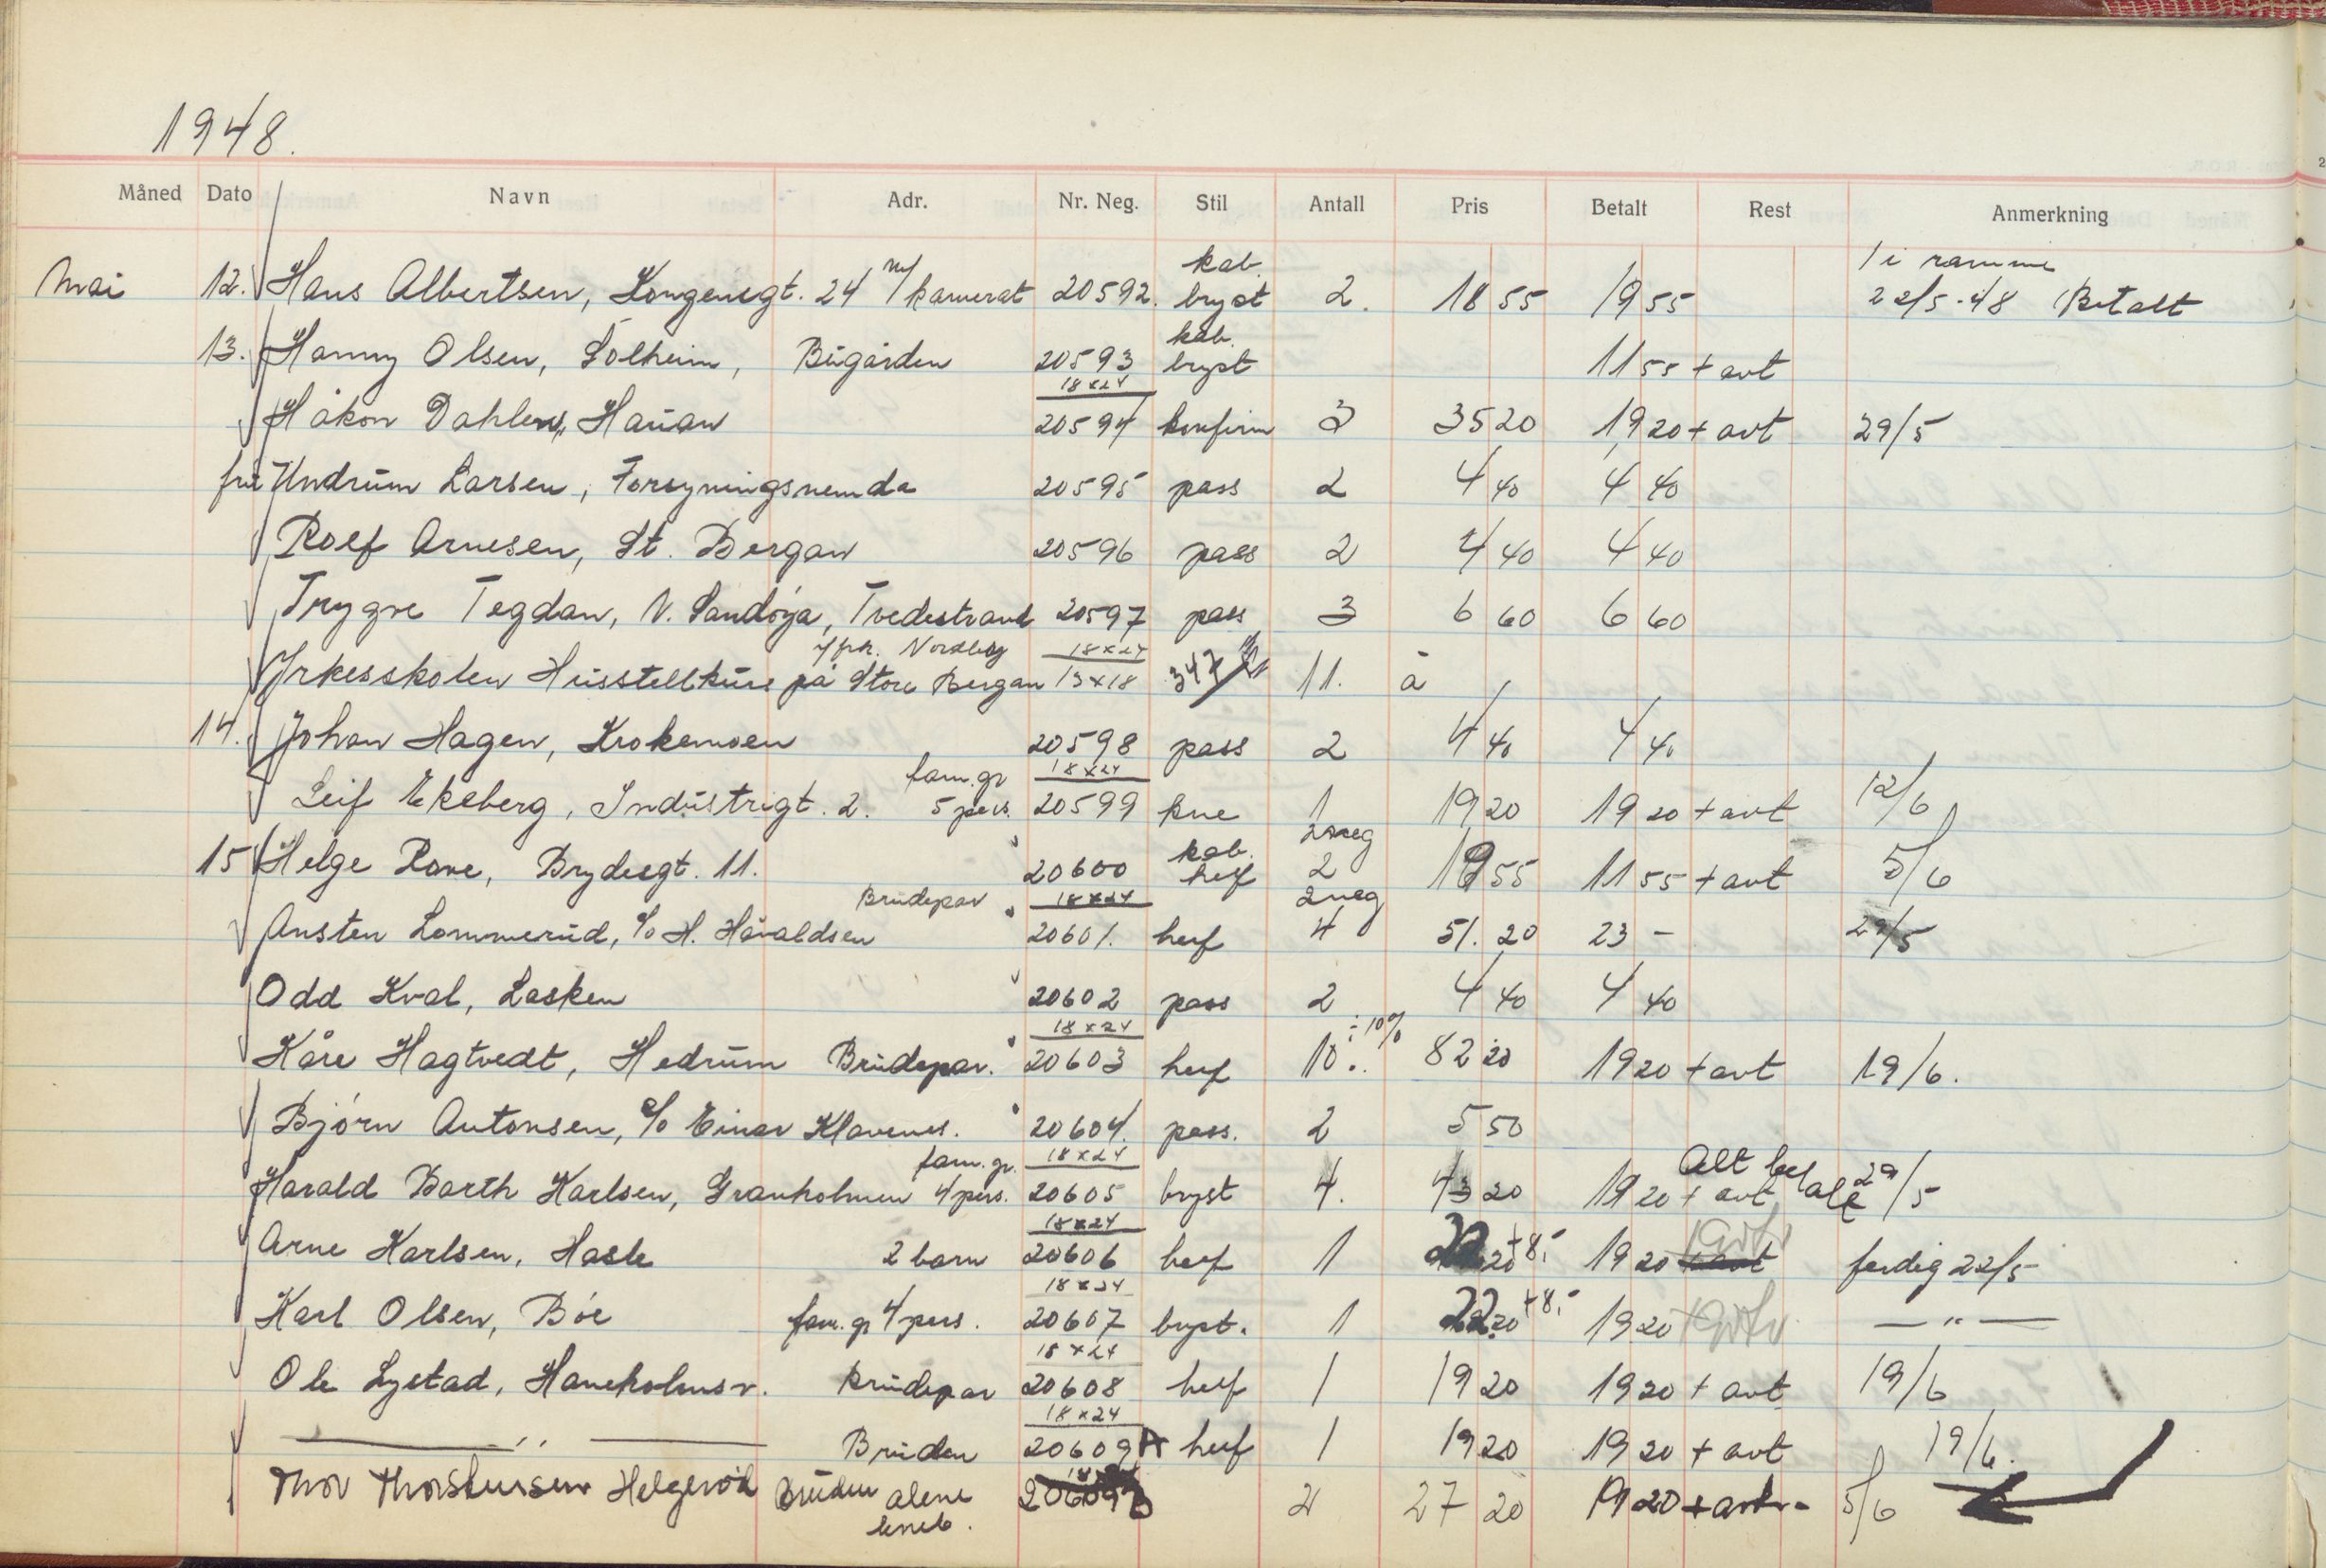 1948.
Måned Dato Navn Adr. Nr. Neg. Stil Antall Pris Betalt Rest Anmerkning
kab. 1 i ramme
Mai 12. Hans Albertsen, Kongensgt. 24 m/kamerat 20592. bryst 2. 18 55 19 55 22/5-48 Betalt
kab.
13. Hanny Olsen, Solheim, Bugården 20593 bryst 11 55 + avt
18x24
Håkon Dahlen, Hauan 20594 konfirm 3 35 20 19 20 + avt 29/5
fru Undrum Larsen, Forsyningsnemda 20595 pass 2 4 40 4 40
Rolf Arnesen, St. Bergan 20596 pass 2 4 40 4 40
Trygve Tegdan, N. Sandøya, Tvedestrand 20597 pass 3 6 60 6 60
v/frk. Nordby 18x24
Yrkesskolen Husstellkurs på Store Bergan 13x18 347 11. à
14. Johan Hagen, Krokemoen 20598 pass 2 4 40 4 40
fam.gr 18x24
Leif Ekeberg, Industrigt. 2. 5 pers. 20599 kne 1 19 20 19 20 + avt 12/6
kab. 2 neg
15 Helge Rove, Brydesgt. 11. 20600 helf 2 55 11 55 + avt 5/6
Brudepar 18x24 2 neg
Austen Lommerud, c/o H. Håvaldsen 20601. helf 4 51. 20 23 - 29/5
Odd Kval, Lasken 20602 pass 2 4 40 4 40
18x24 ÷ 10%
Kåre Hagtvedt, Hedrum Brudepar. 20603 helf 10. 82 20 19 20 + avt 19/6.
Bjørn Antonsen, c/o Einar Klavenes. 20604. pass. 2 5 50
fam. gr. 18x24 Alt betalt
Harald Barth Karlsen, Granholmen 4 pers. 20605 bryst 4. 43 20 19 20 + avt 29/5
18x24
Arne Karlsen, Hasle 2 barn 20606 helf 1 22 20 +8,- 19 20 + avt ferdig 22/5
18x24
Karl Olsen, Bøe fam. gr 4 pers. 20607 bryst. 1 22 20 +8,- 19 20 — " —
18x24
Ole Lystad, Haneholmsv. Brudepar 20608 helf 1 19 20 19 20 + avt 19/6
18x24
— " — Bruden 20609 A helf 1 19 20 19 20 + avt 19/6.
Thor Thorstensen Helgerød Bruden alene 20609 B 2 27 20 19 20 + avt. 5/6